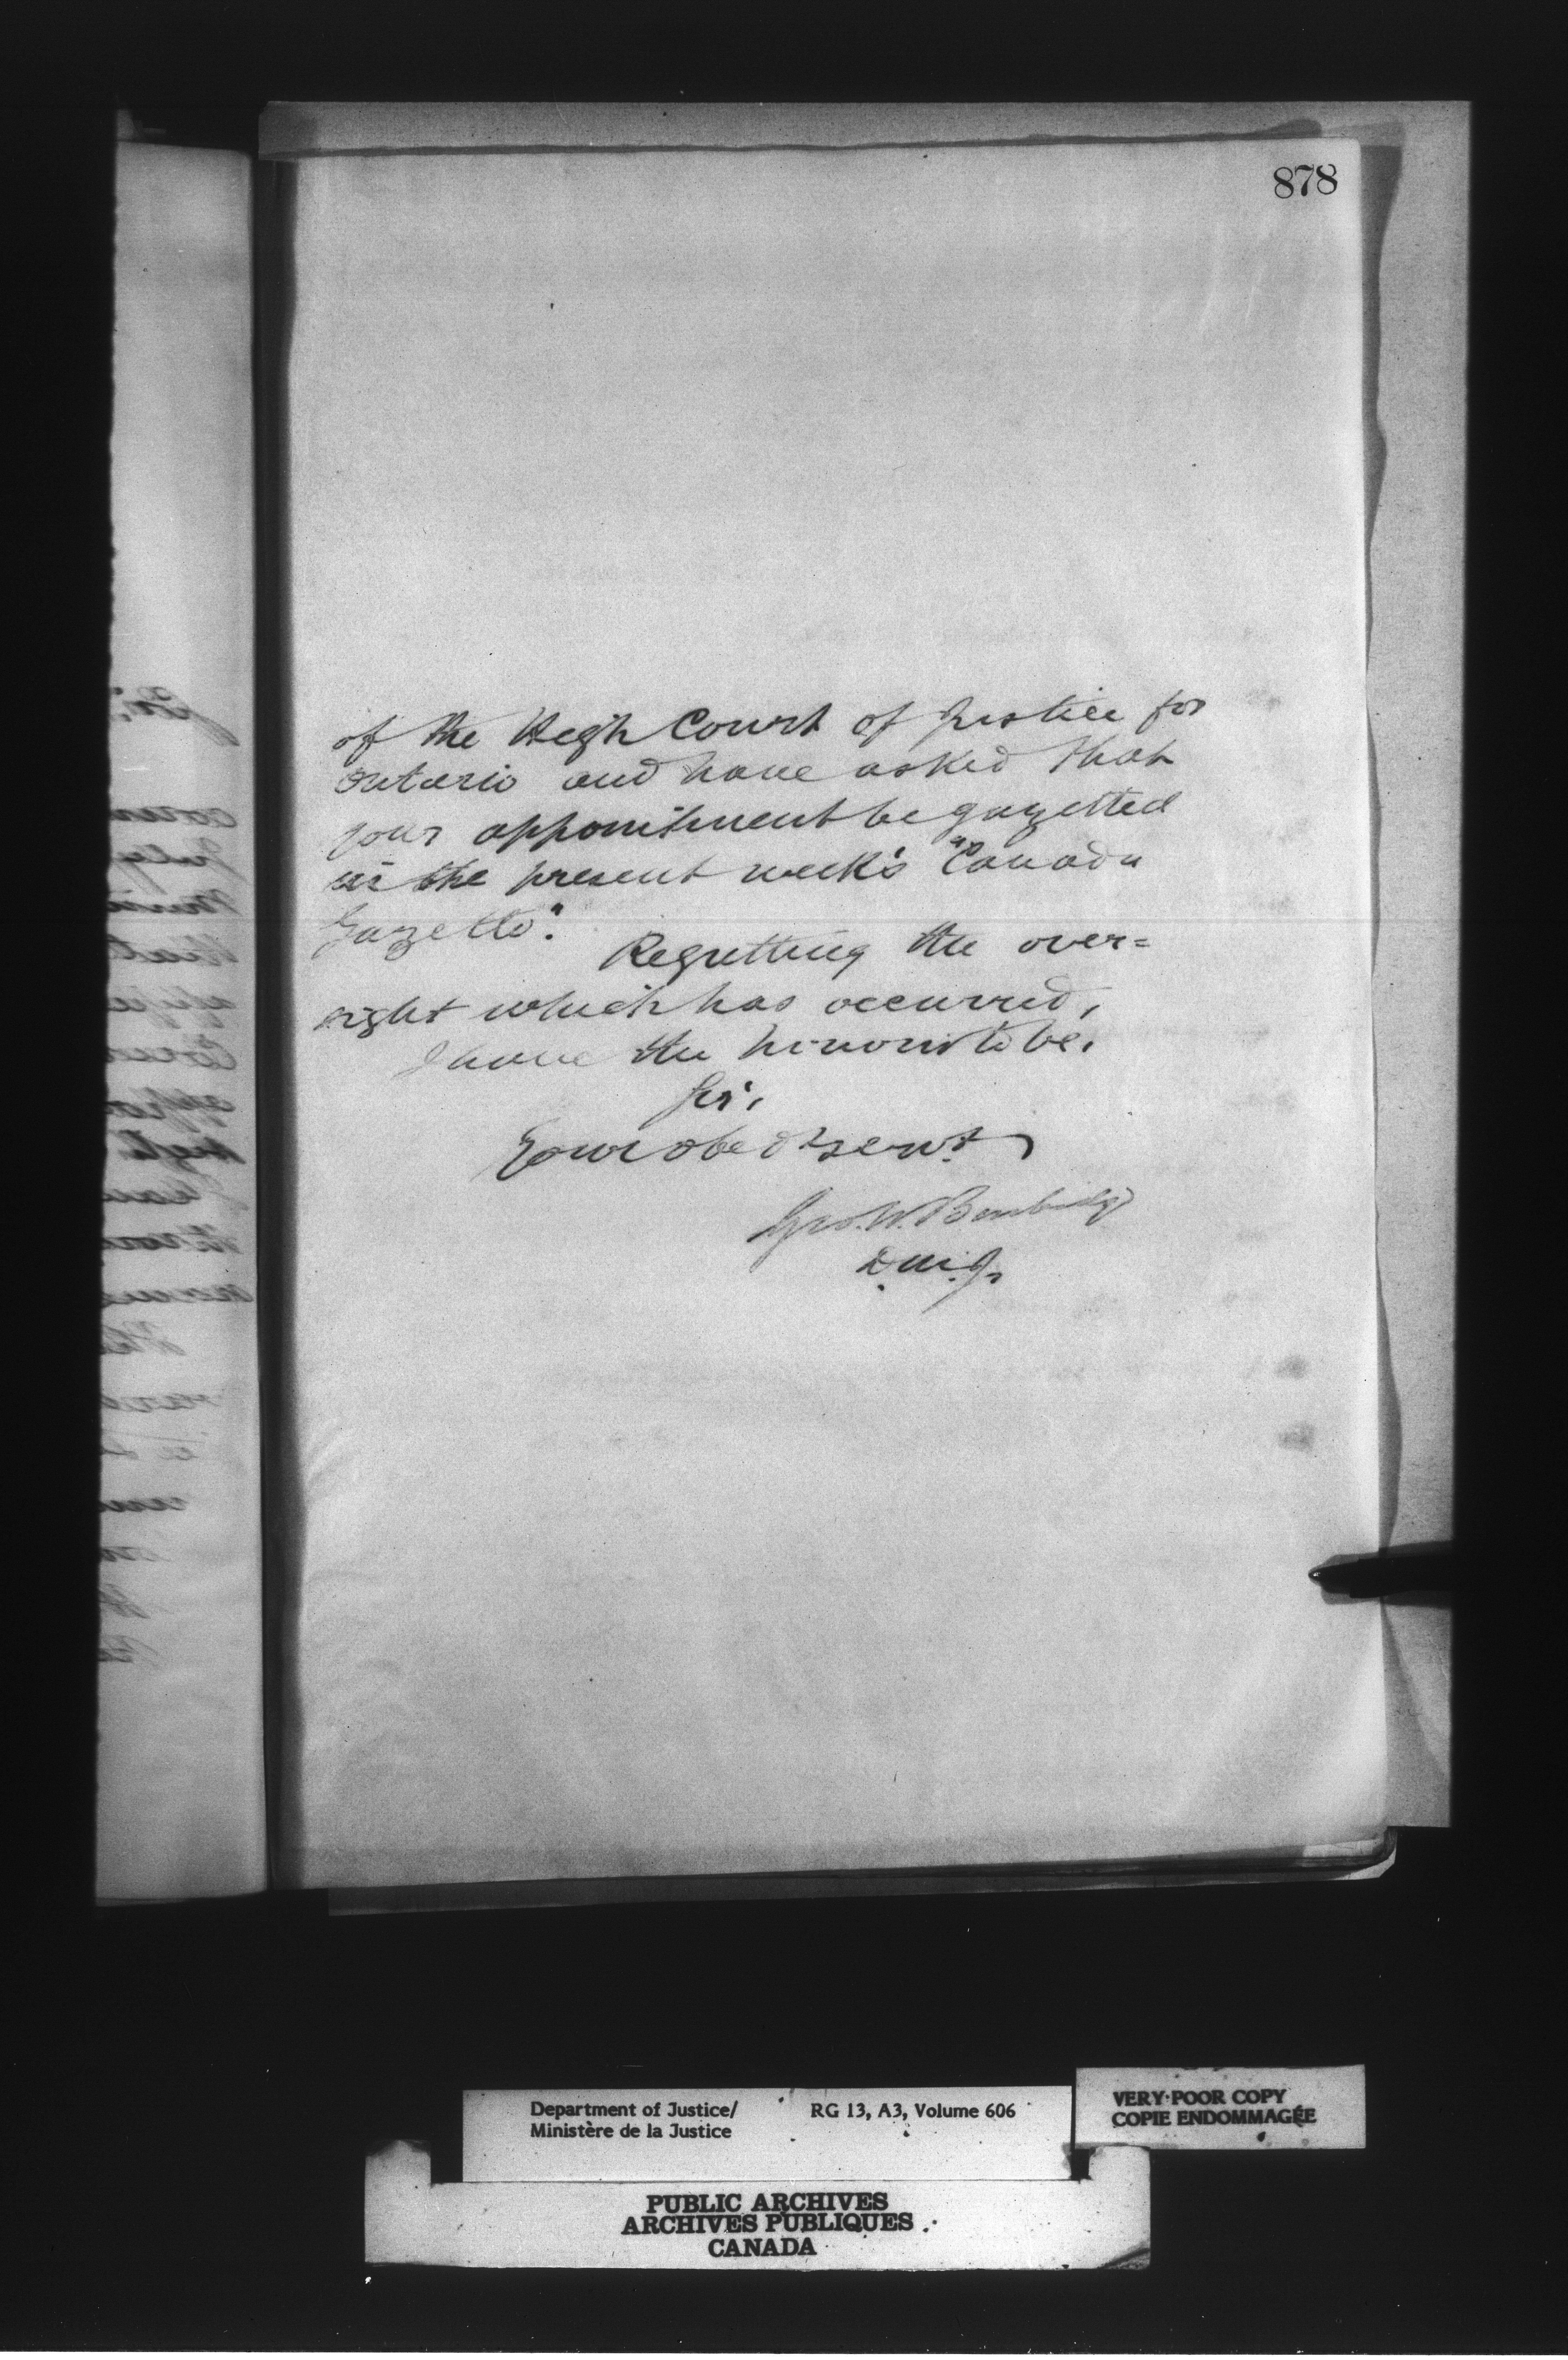 878
of the High Court of Justice for
Ontario and have asked that
your appointment be gazetted
in the present week's "Canada
Gazette".
Regretting the over=
sight which has occurred,
I have the honour to be,
Sir,
Your obedt servt
Geo. W. Burbidge
D.M.J.
Department of Justice/
Ministère de la Justice
RG 13, A3, Volume 606
VERY POOR COPY
COPIE ENDOMMAGÉE
PUBLIC ARCHIVES
ARCHIVES PUBLIQUES
CANADA